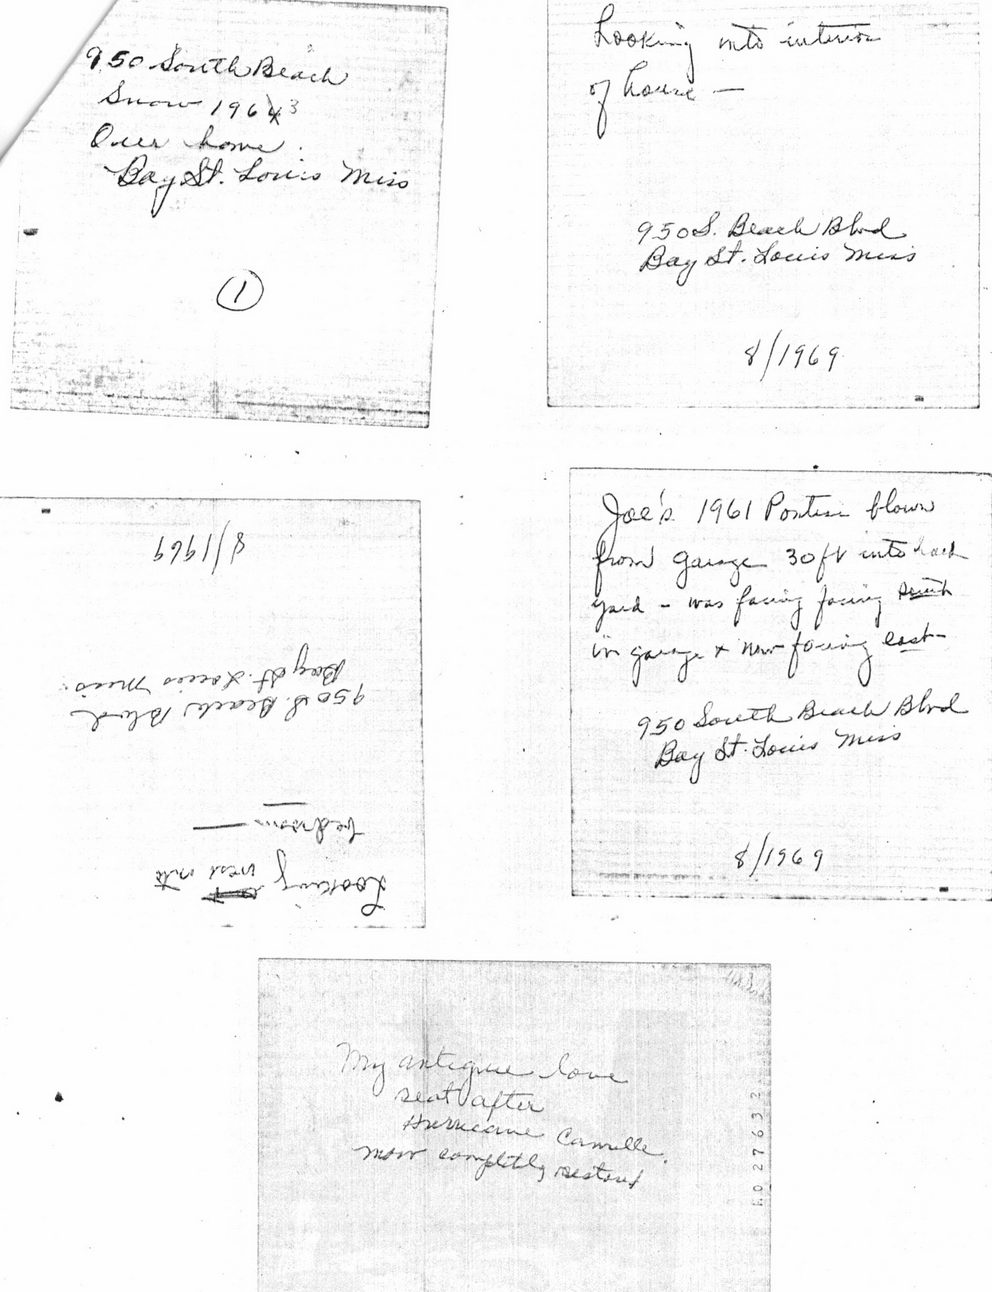 950 South Beach
Snow 1963
Our home.
Bay St. Louis Miss
1
Looking into interior
of house —
950 S. Beach Blvd
Bay St. Louis Miss
8/1969
Looking west into
bedroom —
950 S. Beach Blvd
Bay St. Louis Miss.
8/1969
Joe's 1961 Pontiac blown
from garage 30 ft into back
yard - was facing facing south
in garage & now facing east
950 South Beach Blvd
Bay St. Louis Miss
8/1969
My antique love
seat after
Hurricane Camille.
now completly restored